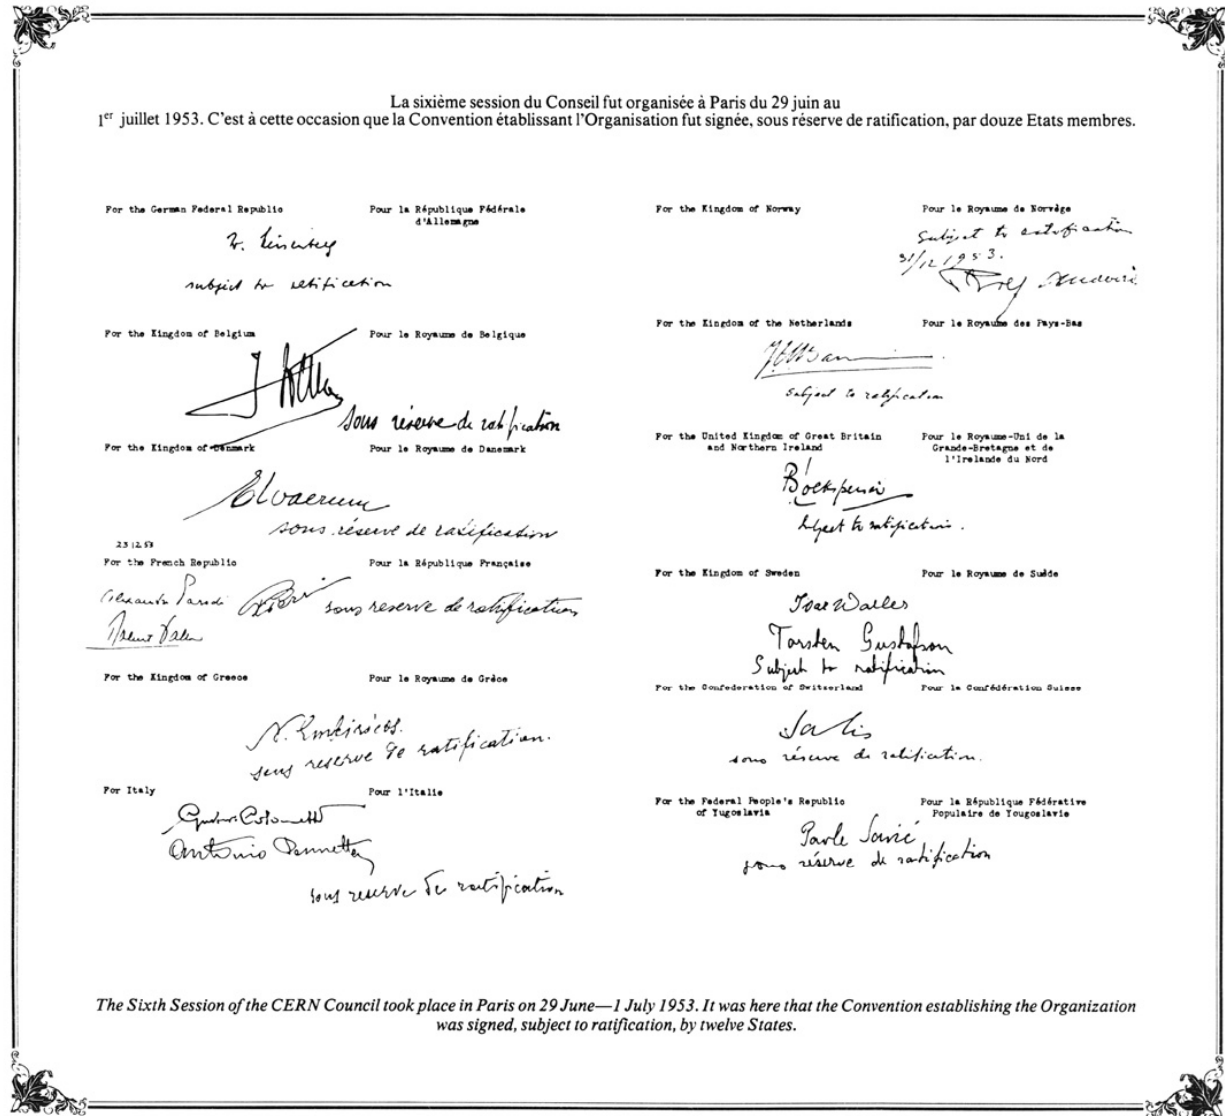 La sixième session du Conseil fut organisée à Paris du 29 juin au
1er juillet 1953. C'est à cette occasion que la Convention établissant l'Organisation fut signée, sous réserve de ratification, par douze Etats membres.
For the German Federal Republic
Pour la République Fédérale
d'Allemagne
subject to ratification
For the Kingdom of Belgium
Pour le Royaume de Belgique
sous réserve de ratification
For the Kingdom of Denmark
Pour le Royaume de Danemark
sous réserve de ratification
23 12 53
For the French Republic
Pour la République Française
Alexandre Parodi
sous reserve de ratification
For the Kingdom of Greece
Pour le Royaume de Grèce
sous reserve de ratification.
For Italy
Pour l'Italie
Antonio Pennetta
sous reserve de ratification
For the Kingdom of Norway
Pour le Royaume de Norvège
Subject to ratification
31/12 1953.
For the Kingdom of the Netherlands
Pour le Royaume des Pays-Bas
subject to ratification
For the United Kingdom of Great Britain
and Northern Ireland
Pour le Royaume-Uni de la
Grande-Bretagne et de
l'Irelande du Nord
subject to ratification.
For the Kingdom of Sweden
Pour le Royaume de Suède
Ivar Waller
Torsten Gustafson
Subject to ratification
For the Confederation of Switzerland
Pour la Confédération Suisse
Salis
sous réserve de ratification.
For the Federal People's Republic
of Yugoslavia
Pour la République Fédérative
Populaire de Yougoslavie
Pavle Savić
sous réserve de ratification
The Sixth Session of the CERN Council took place in Paris on 29 June—1 July 1953. It was here that the Convention establishing the Organization
was signed, subject to ratification, by twelve States.